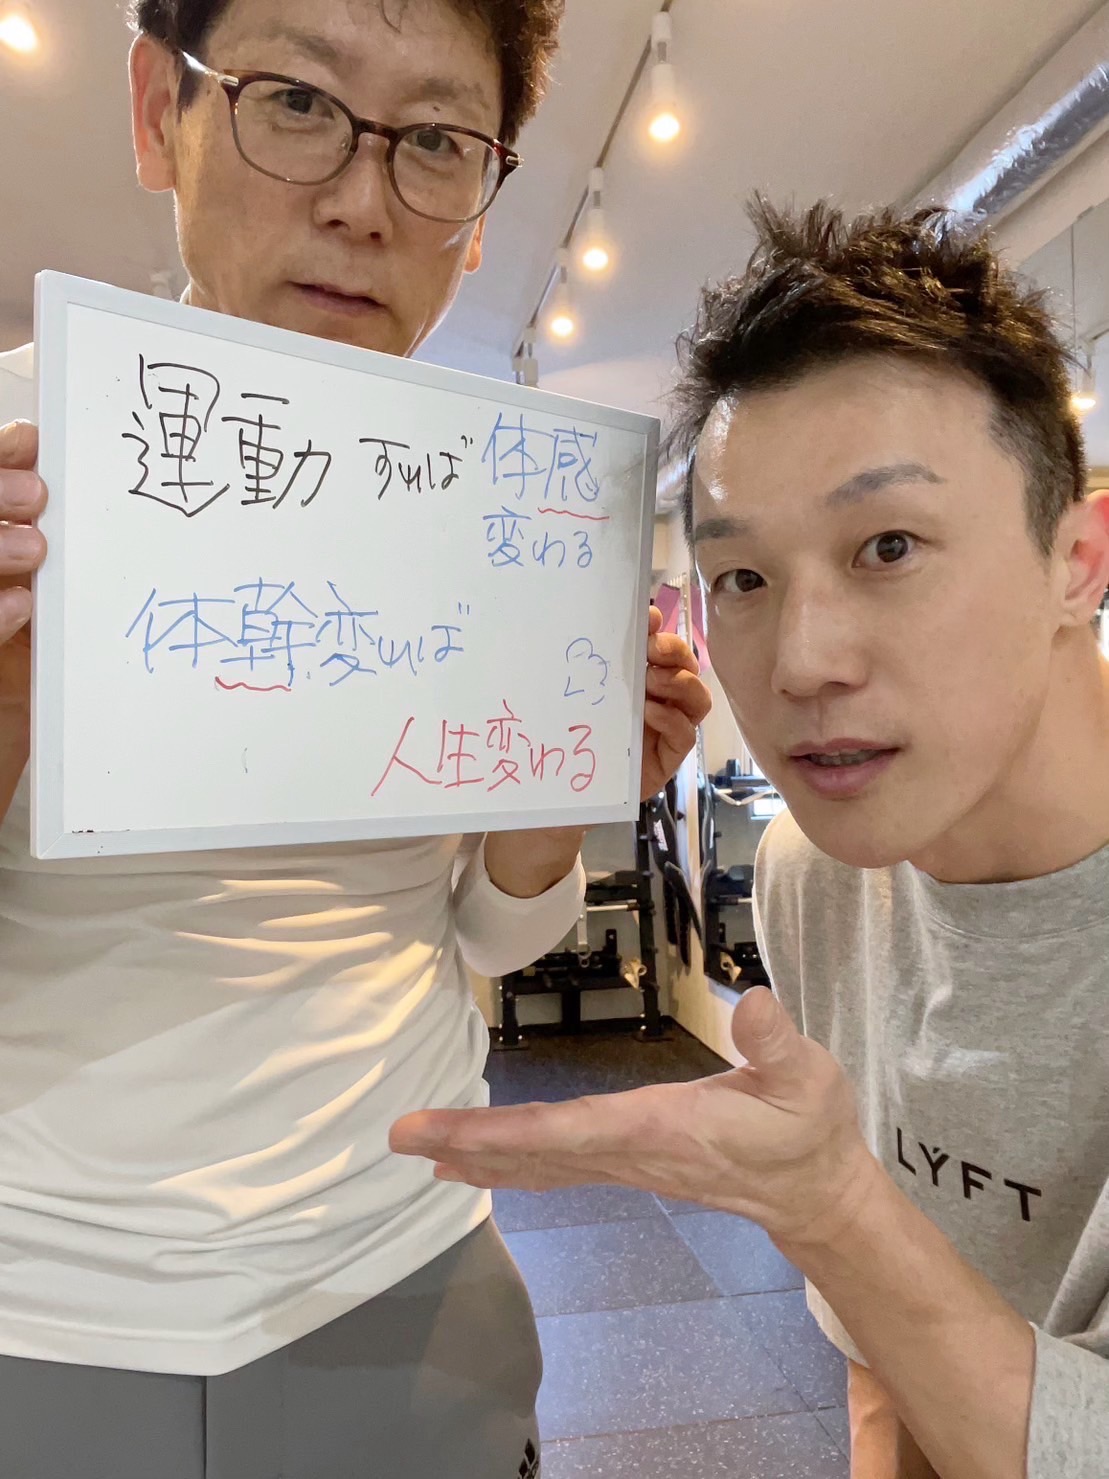 運動すれば体感
変わる
体幹変われば
人生変わる
LYFT